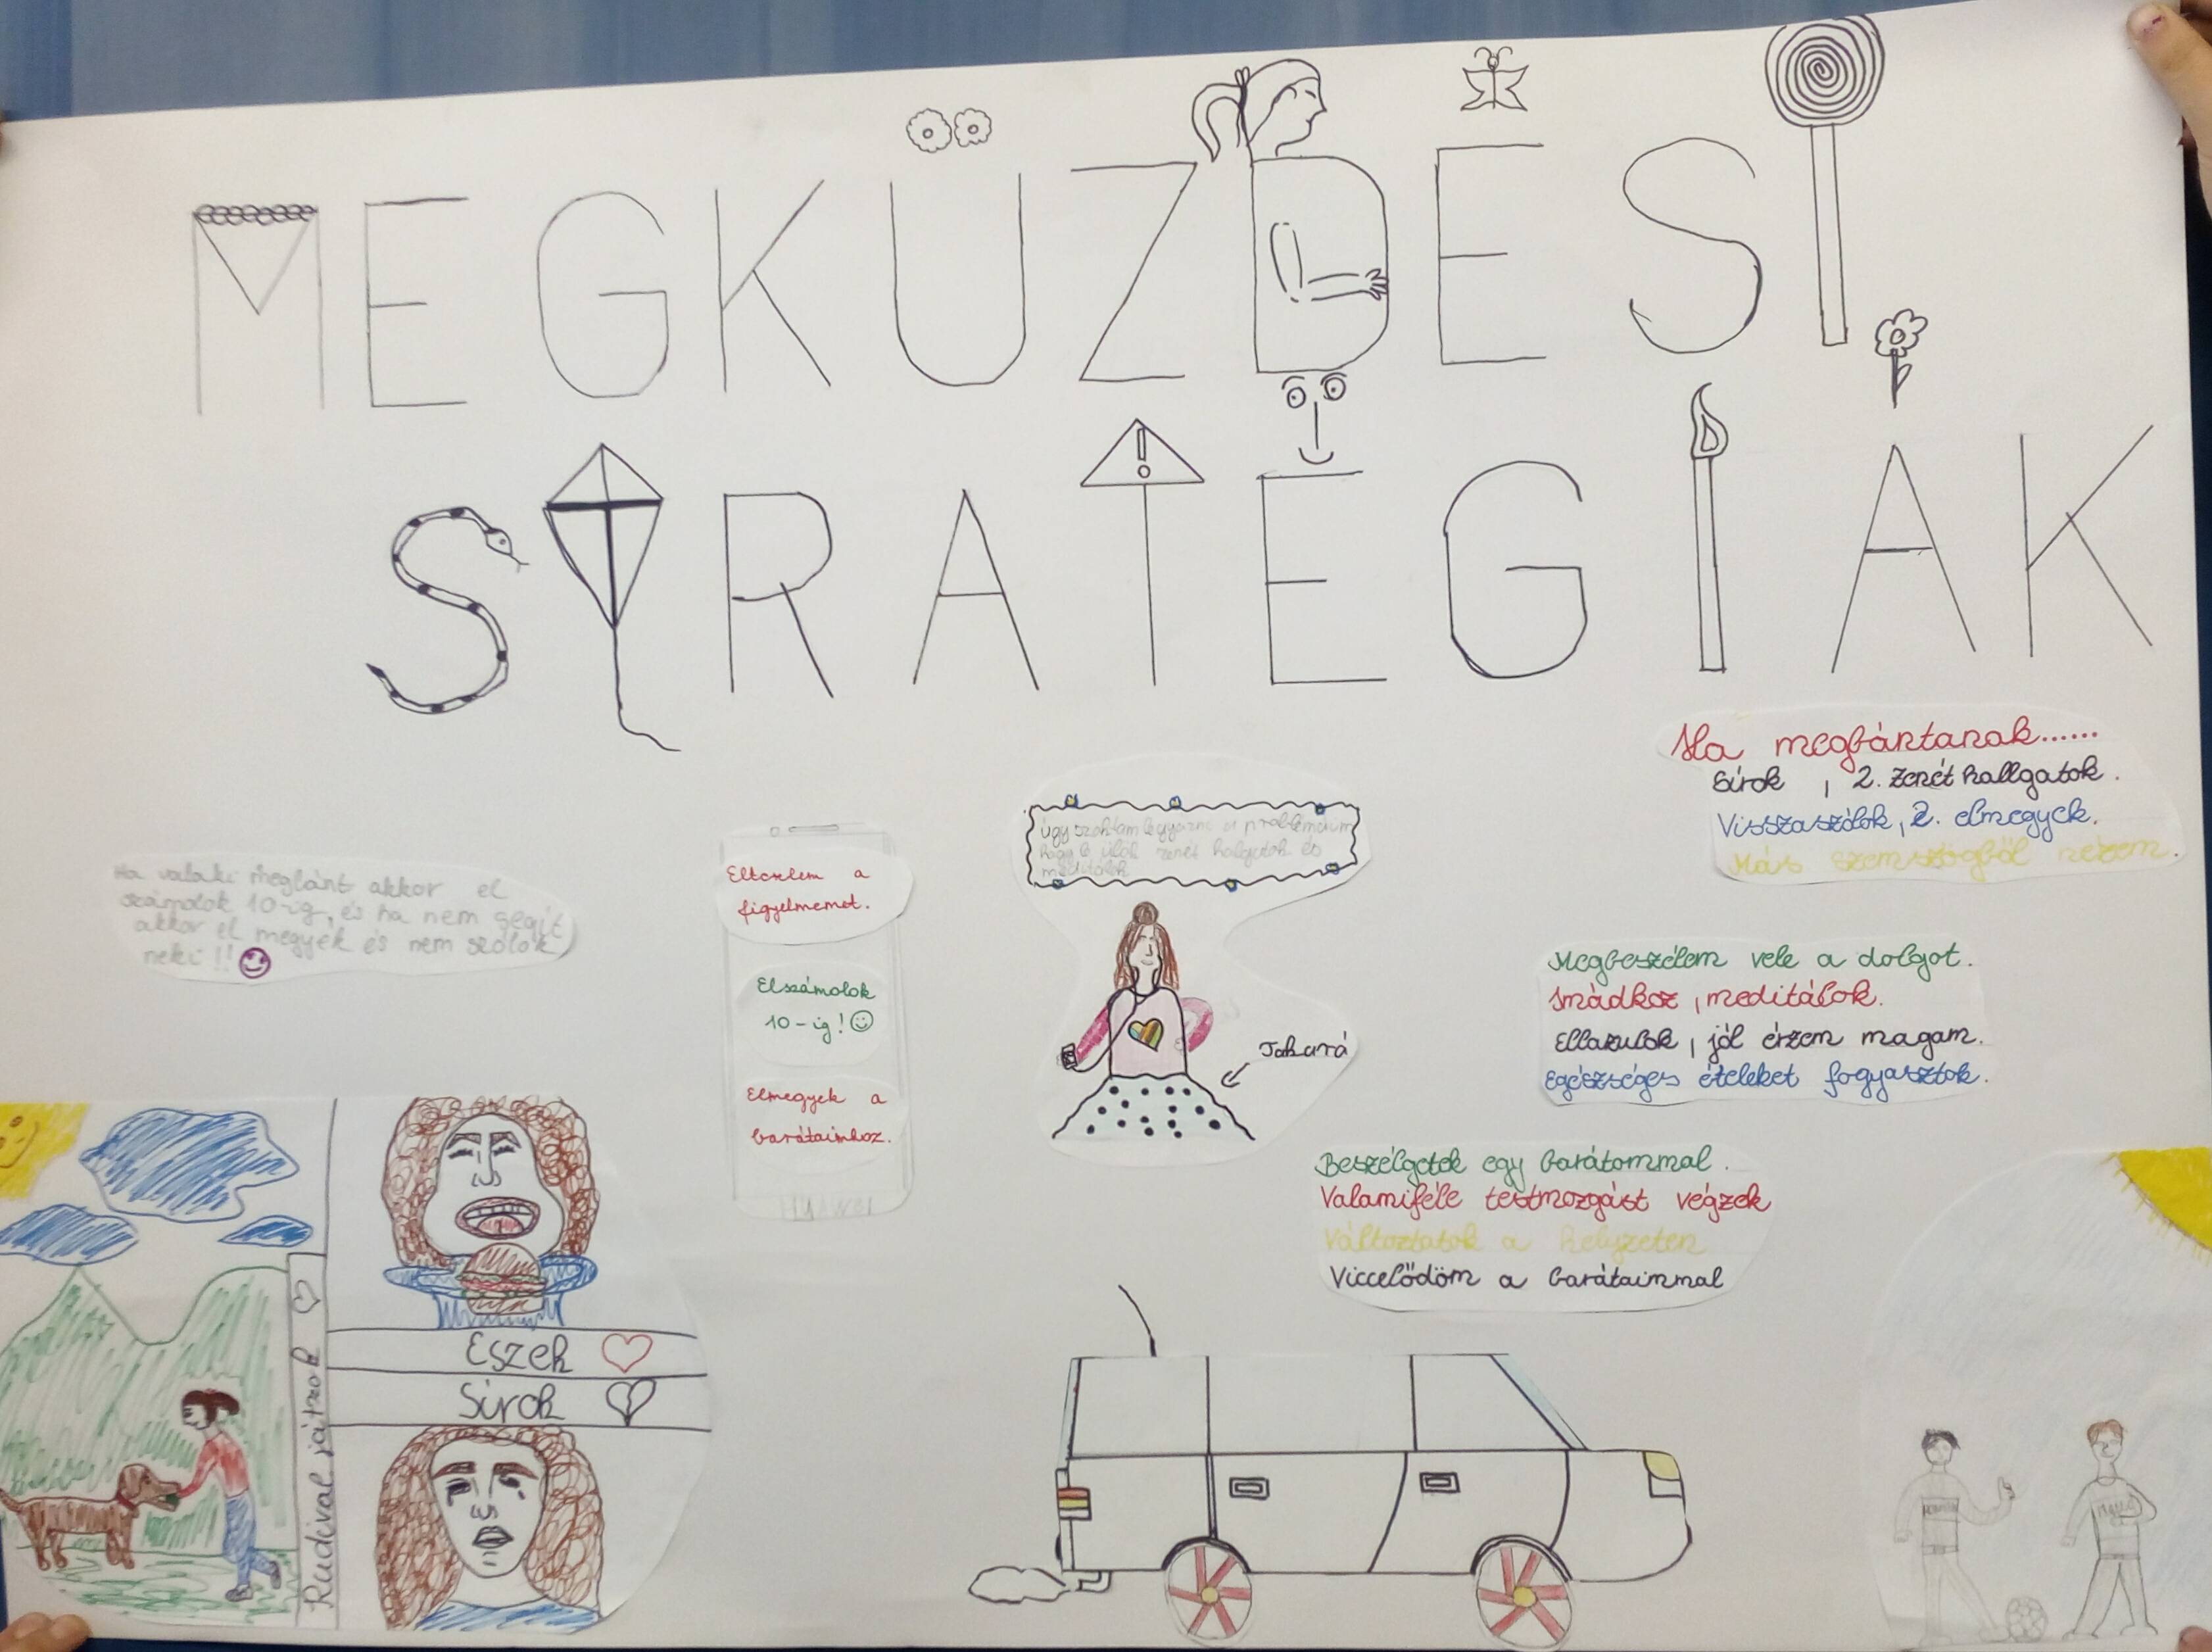 MEGKÜZDÉSI
STRATÉGIÁK
Ha megbántanak......
Sírok , 2. Zenét hallgatok.
Visszaszólok, 2. elmegyek.
Más szemszögből nézem.
Úgy szoktam legyőzni a problémáim
hogy le ülök zenét halgatok és
meditálok
Ha valaki megbánt akkor el
számolok 10-ig, és ha nem segít
akkor el megyek és nem szólok
neki!!
Elterelem a
figyelmemet.
Elszámolok
10-ig!
Elmegyek a
barátaimhoz.
HUAWEI
Takaró
Megbeszélem vele a dolgot.
Imádkoz , meditálok.
Ellazulok , jól érzem magam.
Egészséges ételeket fogyasztok.
Beszélgetek egy barátommal.
Valamiféle testmozgást végzek
Változtatok a helyzeten
Viccelődöm a barátaimmal
Eszek
Sírok
Rudival játszok